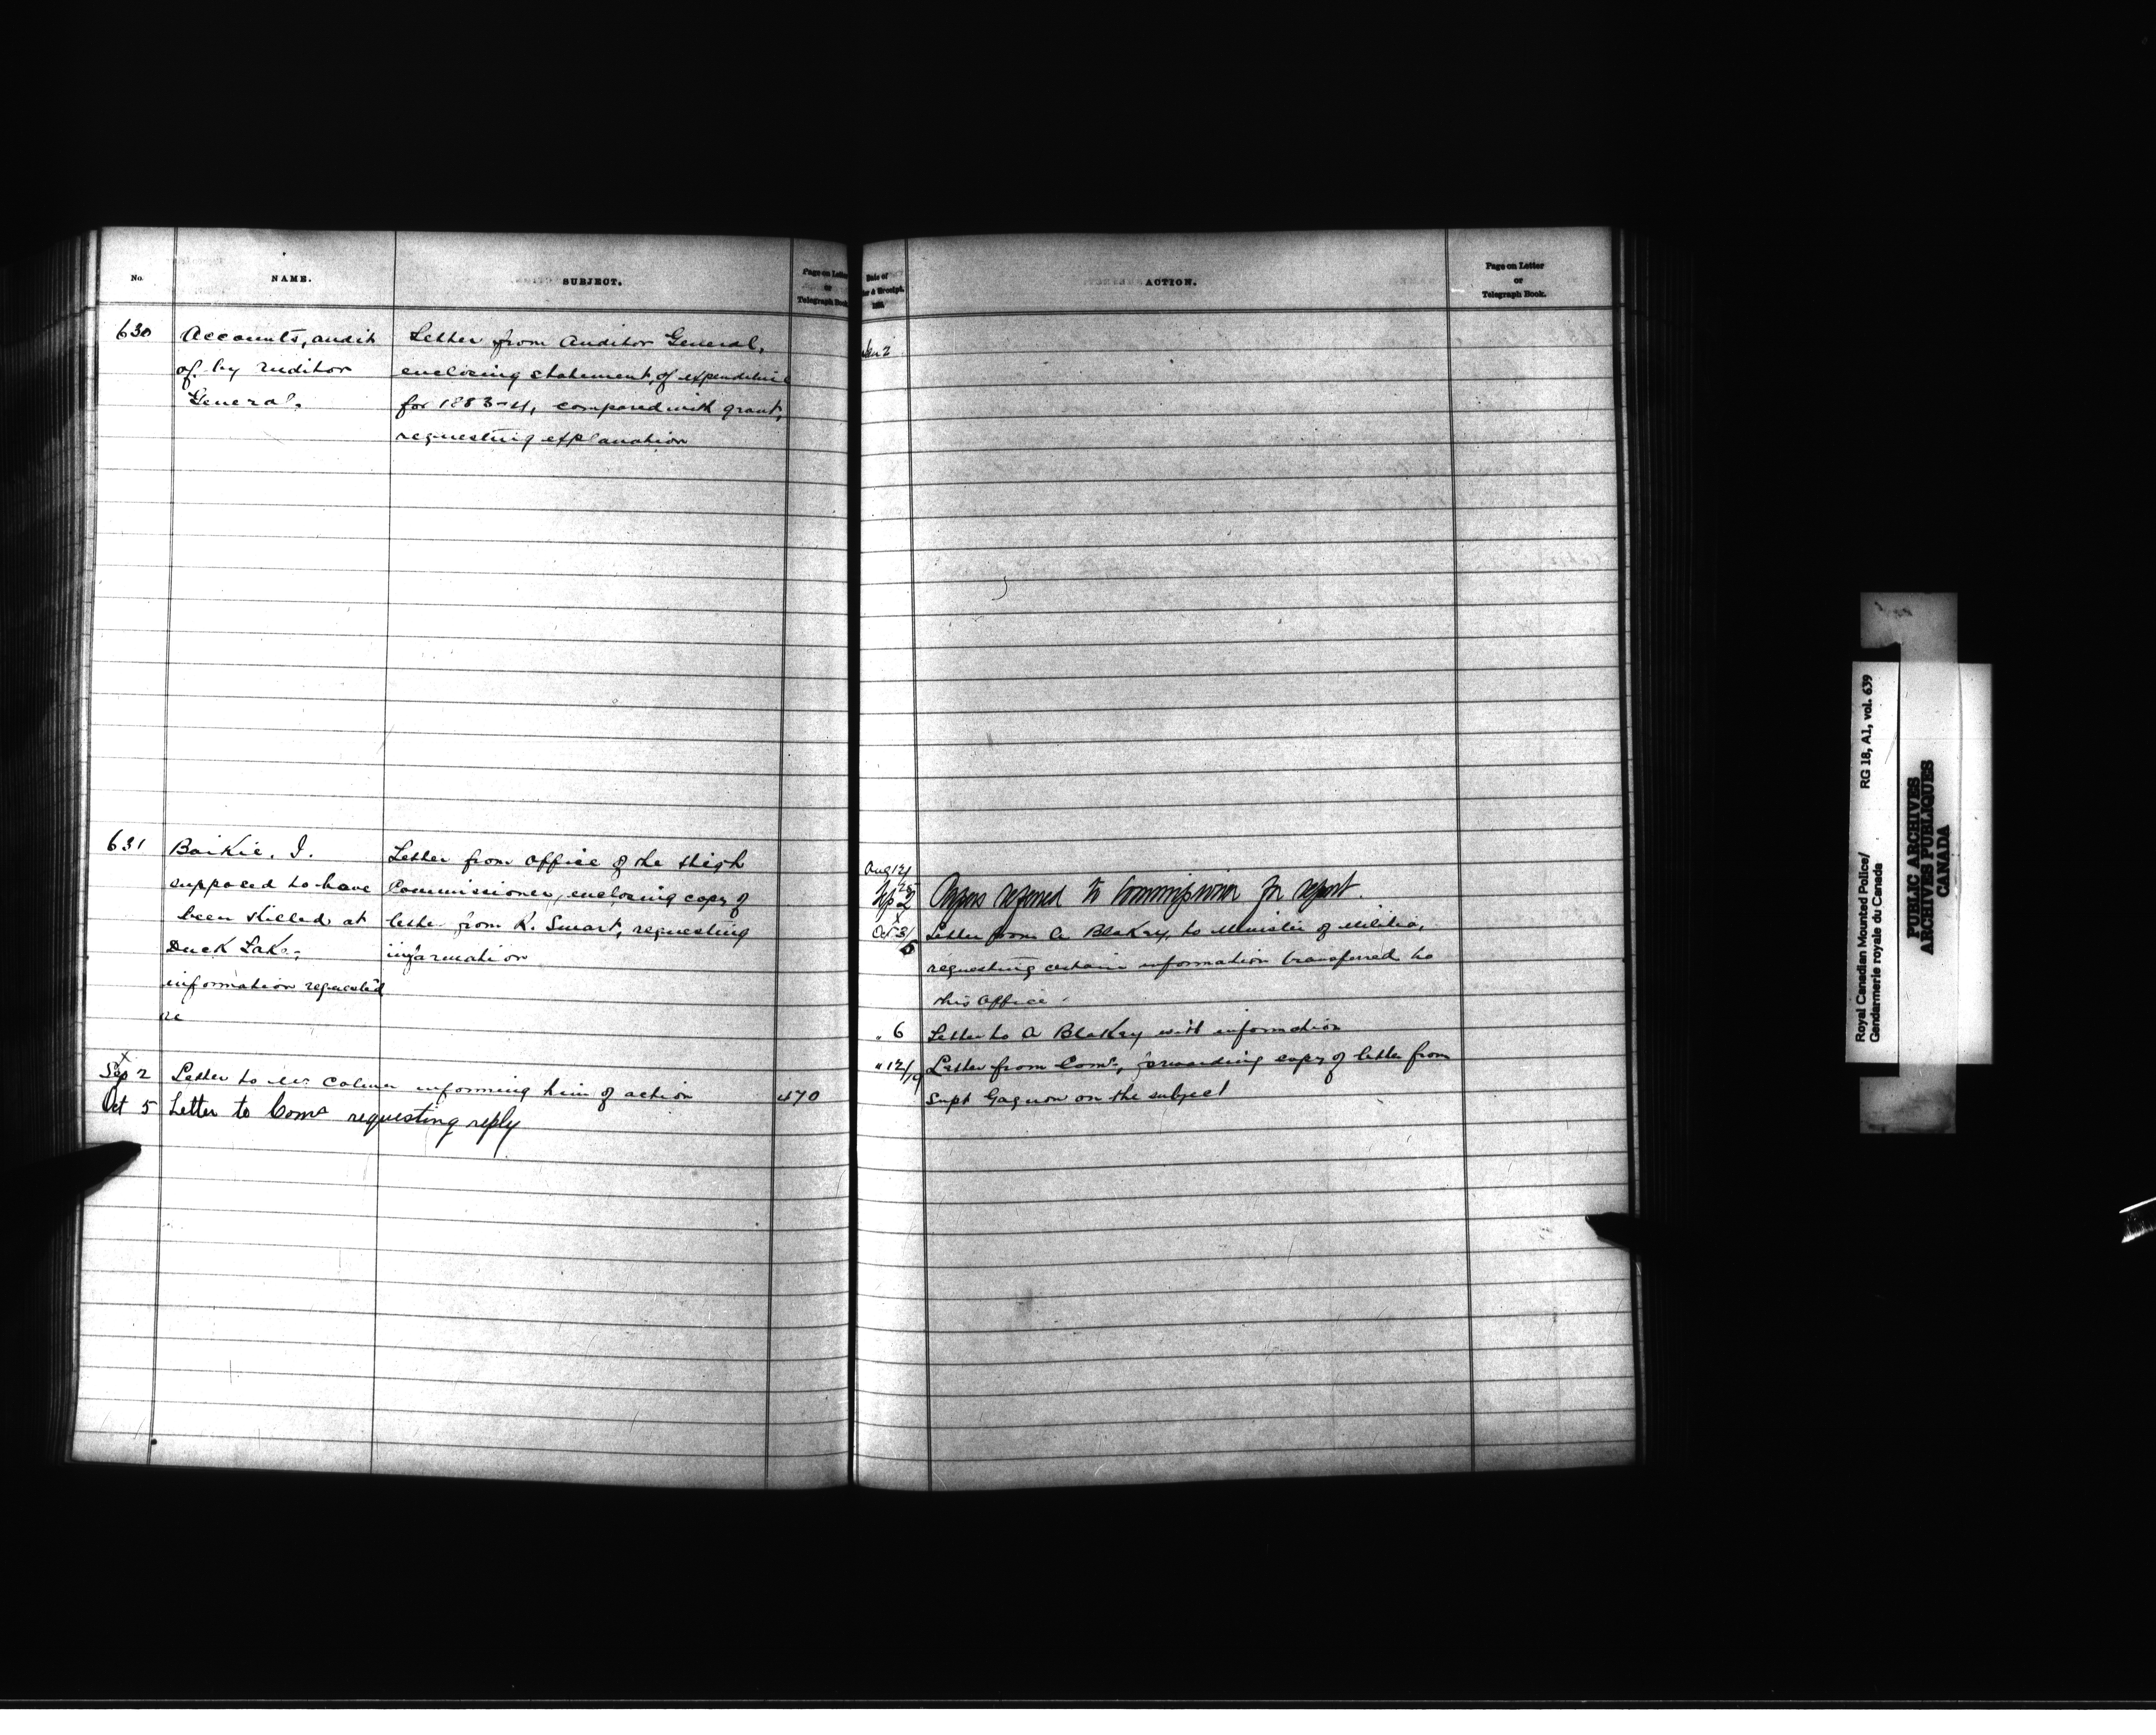 No.
NAME.
SUBJECT.
Page on Letter
or
Telegraph Book.
630
Accounts, audit
of by Auditor
General.
Letter from Auditor General,
enclosing statement of expenditure
for 1883-4, compared with grant,
requesting explanation
631
Baikie, J.
supposed to have
been killed at
Duck Lake,
information requested
re
Letter from office of the High
Commissioner, enclosing copy of
letter from K. Smart, requesting
information
Sep 2 Letter to Mr Colmer informing him of action 470
Oct 5 Letter to Comr requesting reply
Date of
& Receipt.
188
ACTION.
Page on Letter
or
Telegraph Book.
2
Aug 12/
25
Sep 2 Papers referred to Commissioner for report.
Oct 3/5 Letter from A Blakey, to Minister of Militia,
requesting certain information transferred to
this office -
" 6 Letter to A Blakey with information
" 12/19 Letter from Comr, forwarding copy of letter from
Supt Gagnon on the subject
Royal Canadian Mounted Police/ RG 18, A1, vol. 639
Gendarmerie royale du Canada
PUBLIC ARCHIVES
ARCHIVES PUBLIQUES
CANADA